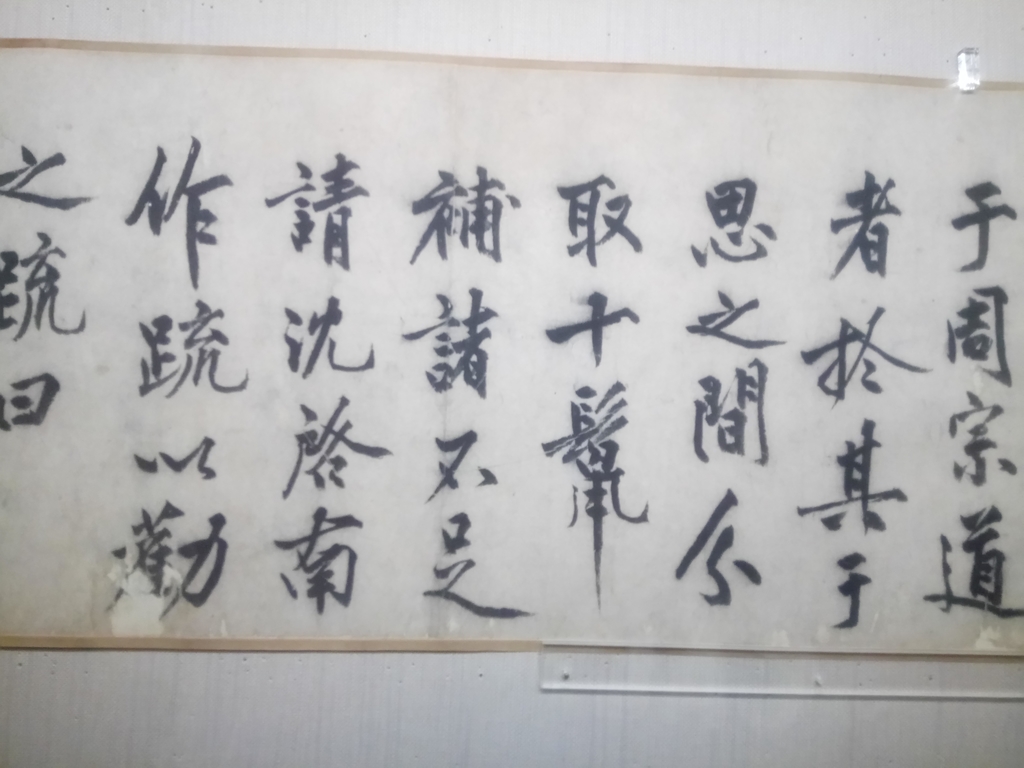 于周宗道
者於其于
思之間分
取十鬣
補諸不足
請沈啓南
作疏以勸
之疏曰